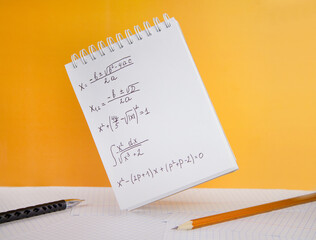 x = (-b ± √(b² - 4ac)) / 2a
x₁,₂ = (-b ± √D) / 2a
x² + (4y/5 - √|x|)² = 1
∫ x² dx / √(x³ + 2)
x² - (2p + 1)x + (p² + p - 2) = 0